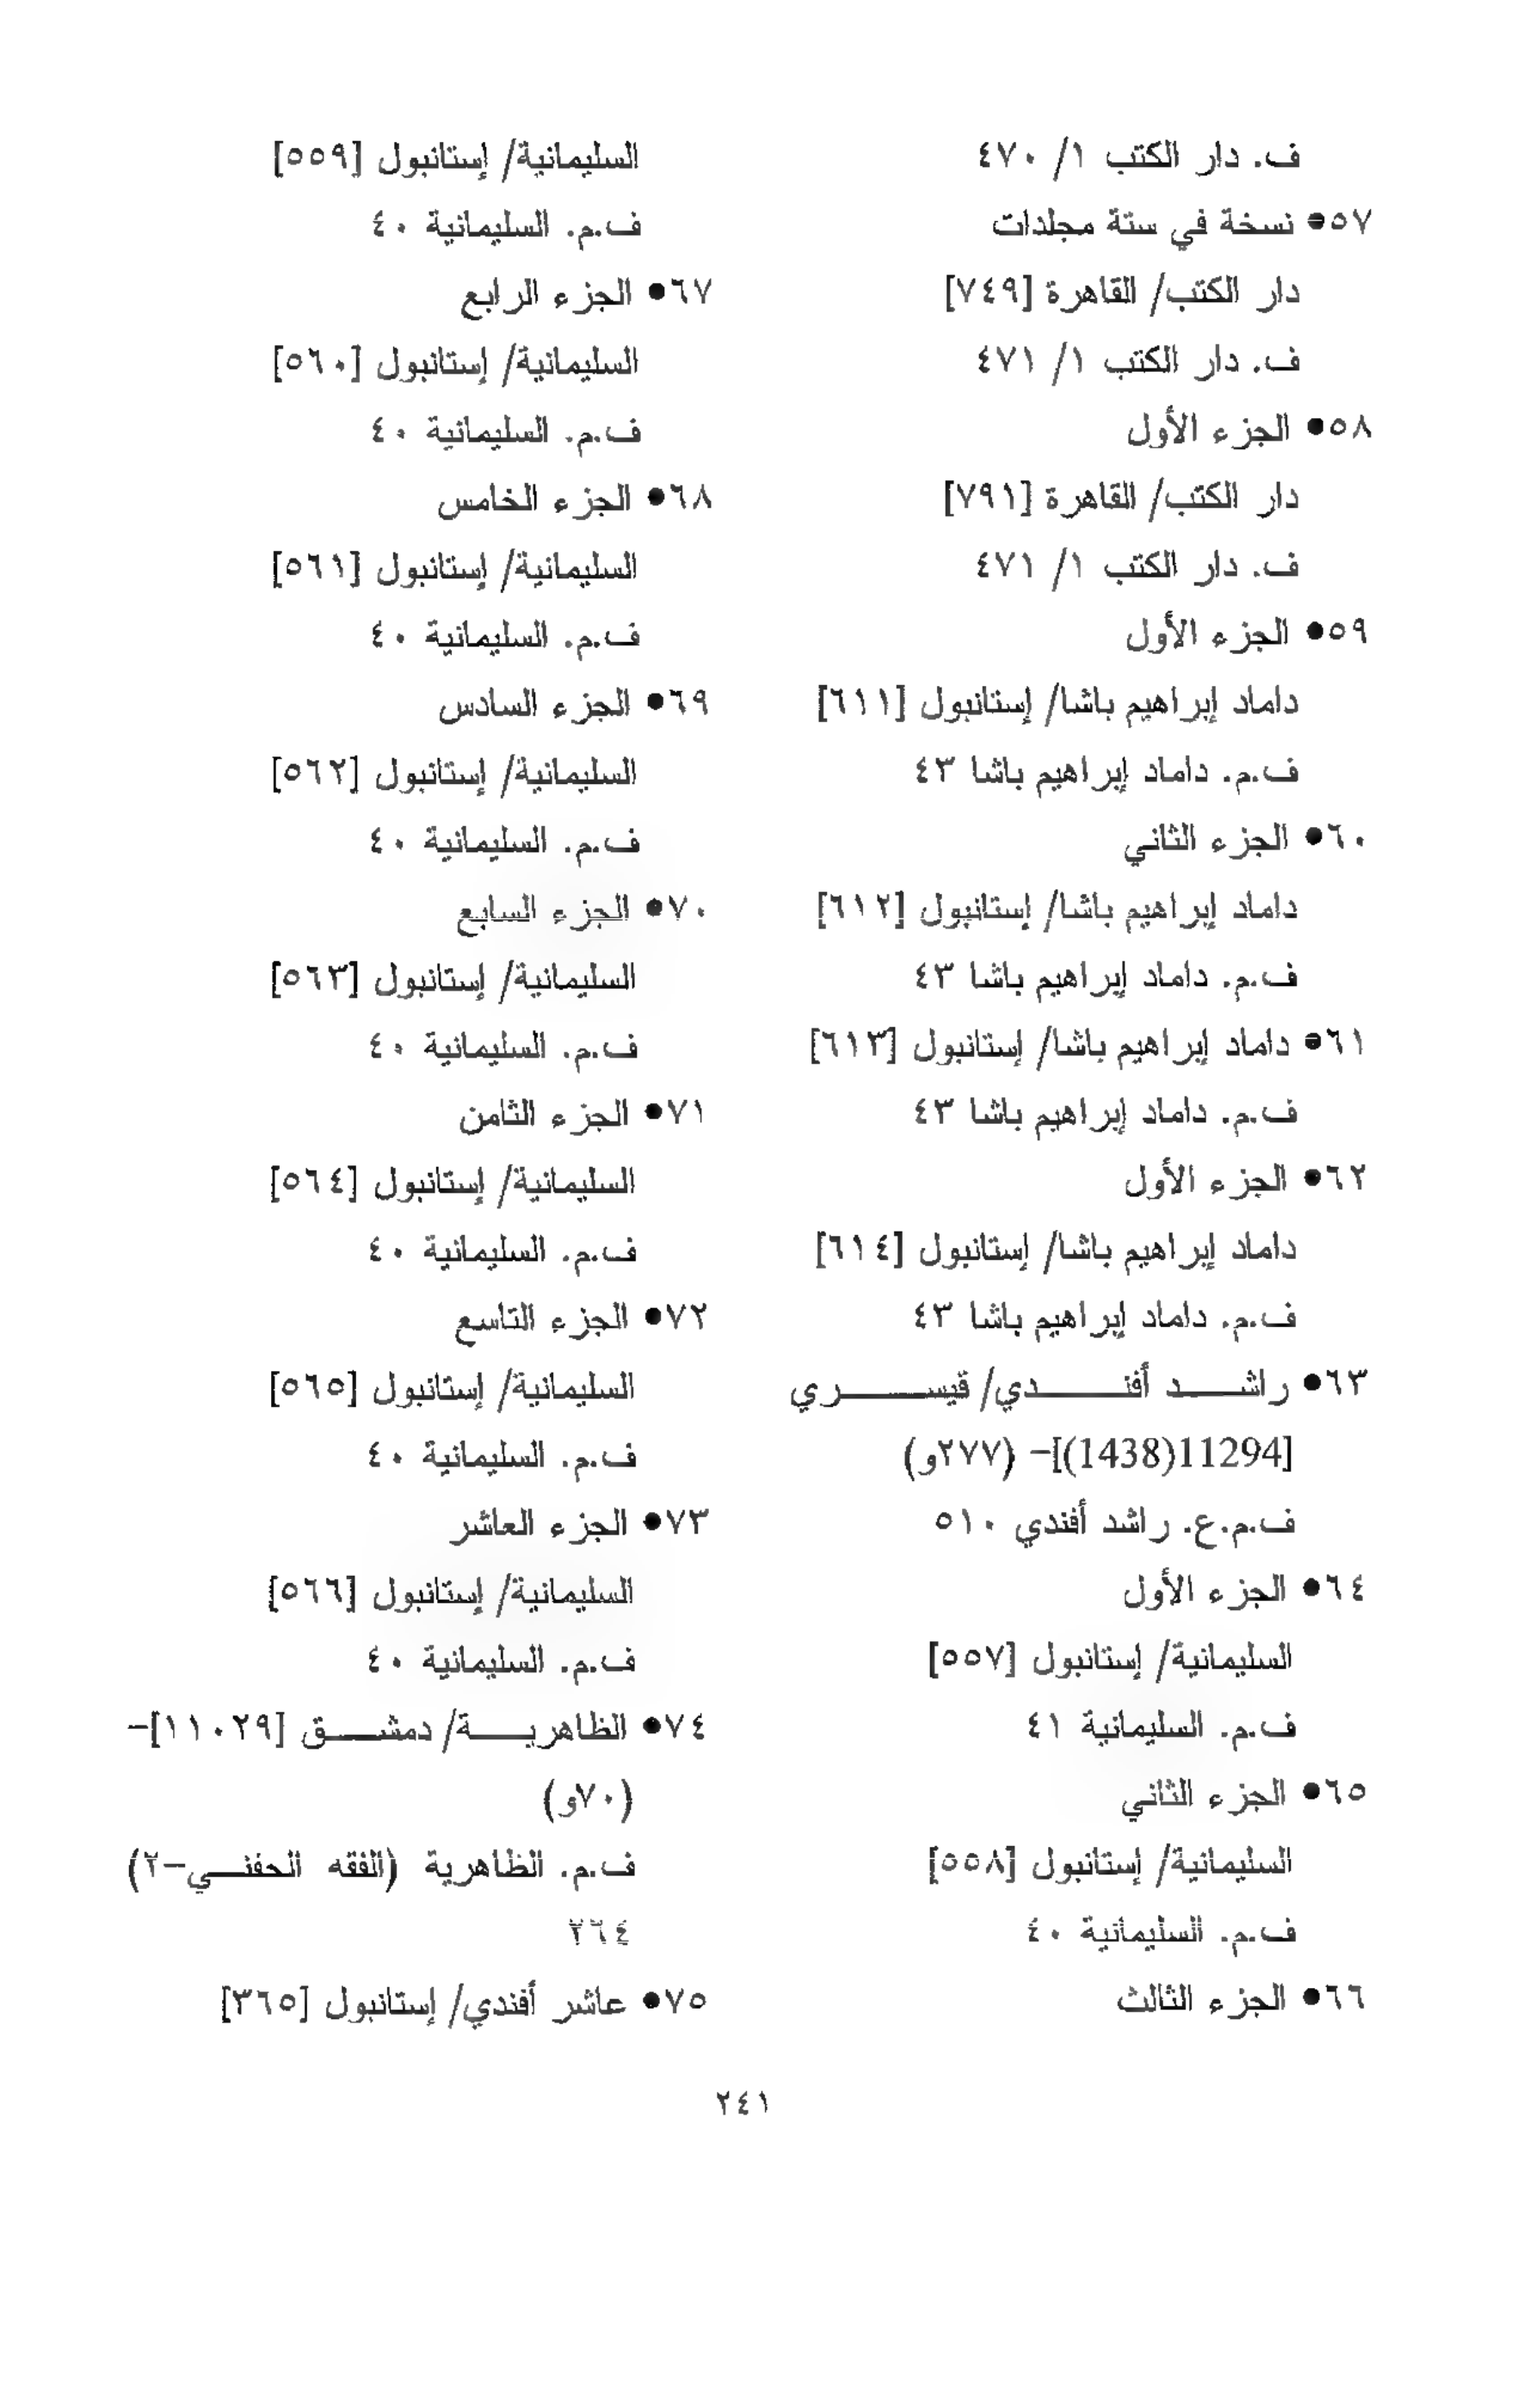 ف. دار الكتب ١/ ٤٧٠
٥٧● نسخة في ستة مجلدات
دار الكتب/ القاهرة [٧٤٩]
ف. دار الكتب ١/ ٤٧١
٥٨● الجزء الأول
دار الكتب/ القاهرة [٧٩١]
ف. دار الكتب ١/ ٤٧١
٥٩● الجزء الأول
داماد إبراهيم باشا/ إستانبول [٦١١]
ف.م. داماد إبراهيم باشا ٤٣
٦٠● الجزء الثاني
داماد إبراهيم باشا/ إستانبول [٦١٢]
ف.م. داماد إبراهيم باشا ٤٣
٦١● داماد إبراهيم باشا/ إستانبول [٦١٣]
ف.م. داماد إبراهيم باشا ٤٣
٦٢● الجزء الأول
داماد إبراهيم باشا/ إستانبول [٦١٤]
ف.م. داماد إبراهيم باشا ٤٣
٦٣● راشـــد أفنـــدي/ قيســـري
[11294(1438)]– (٢٧٧و)
ف.م.ع. راشد أفندي ٥١٠
٦٤● الجزء الأول
السليمانية/ إستانبول [٥٥٧]
ف.م. السليمانية ٤١
٦٥● الجزء الثاني
السليمانية/ إستانبول [٥٥٨]
ف.م. السليمانية ٤٠
٦٦● الجزء الثالث
السليمانية/ إستانبول [٥٥٩]
ف.م. السليمانية ٤٠
٦٧● الجزء الرابع
السليمانية/ إستانبول [٥٦٠]
ف.م. السليمانية ٤٠
٦٨● الجزء الخامس
السليمانية/ إستانبول [٥٦١]
ف.م. السليمانية ٤٠
٦٩● الجزء السادس
السليمانية/ إستانبول [٥٦٢]
ف.م. السليمانية ٤٠
٧٠● الجزء السابع
السليمانية/ إستانبول [٥٦٣]
ف.م. السليمانية ٤٠
٧١● الجزء الثامن
السليمانية/ إستانبول [٥٦٤]
ف.م. السليمانية ٤٠
٧٢● الجزء التاسع
السليمانية/ إستانبول [٥٦٥]
ف.م. السليمانية ٤٠
٧٣● الجزء العاشر
السليمانية/ إستانبول [٥٦٦]
ف.م. السليمانية ٤٠
٧٤● الظاهريـــة/ دمشـــق [١١٠٢٩]–
(٧٠و)
ف.م. الظاهرية (الفقه الحفنـــي–٢)
٢٦٤
٧٥● عاشر أفندي/ إستانبول [٣٦٥]
٢٤١